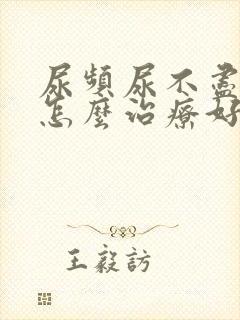 尿頻尿不盡
怎麼治療好
王毅訪